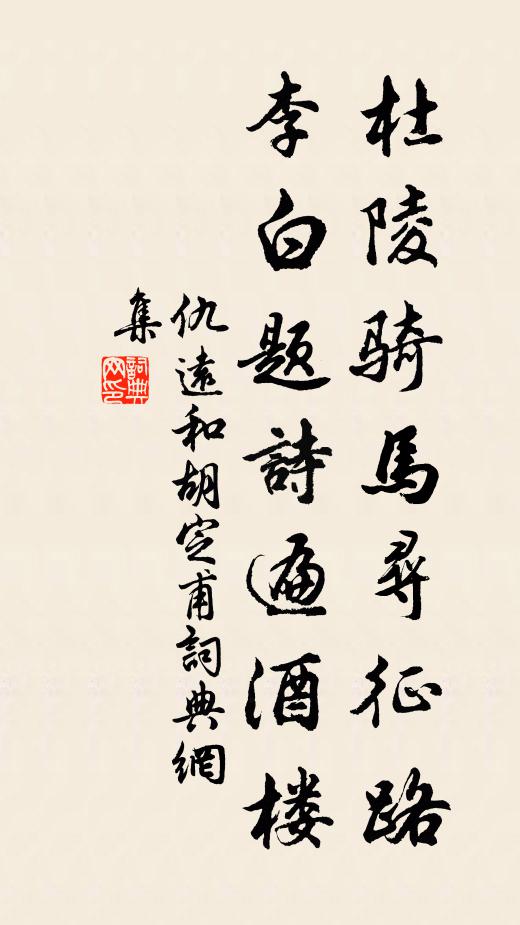 杜陵骑馬尋征路
李白题詩遍酒楼
仇遠和胡定甫詞典網
集
詞典
网印